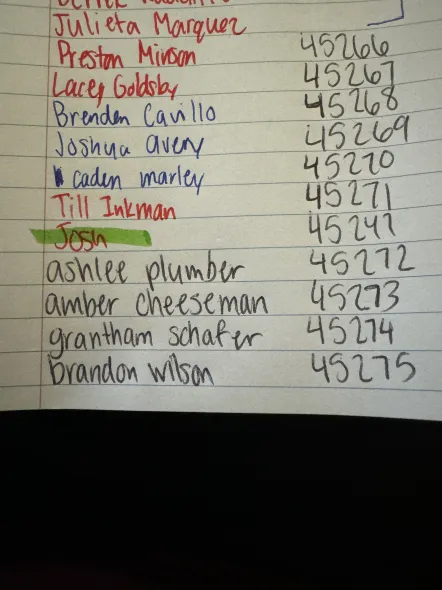 Julieta Marquez
Preston Minson 45266
Lacey Goldsby 45267
Brenden Cavillo 45268
Joshua avery 45269
caden marley 45270
Till Inkman 45271
Josh 45247
ashlee plumber 45272
amber cheeseman 45273
grantham schafer 45274
brandon wilson 45275